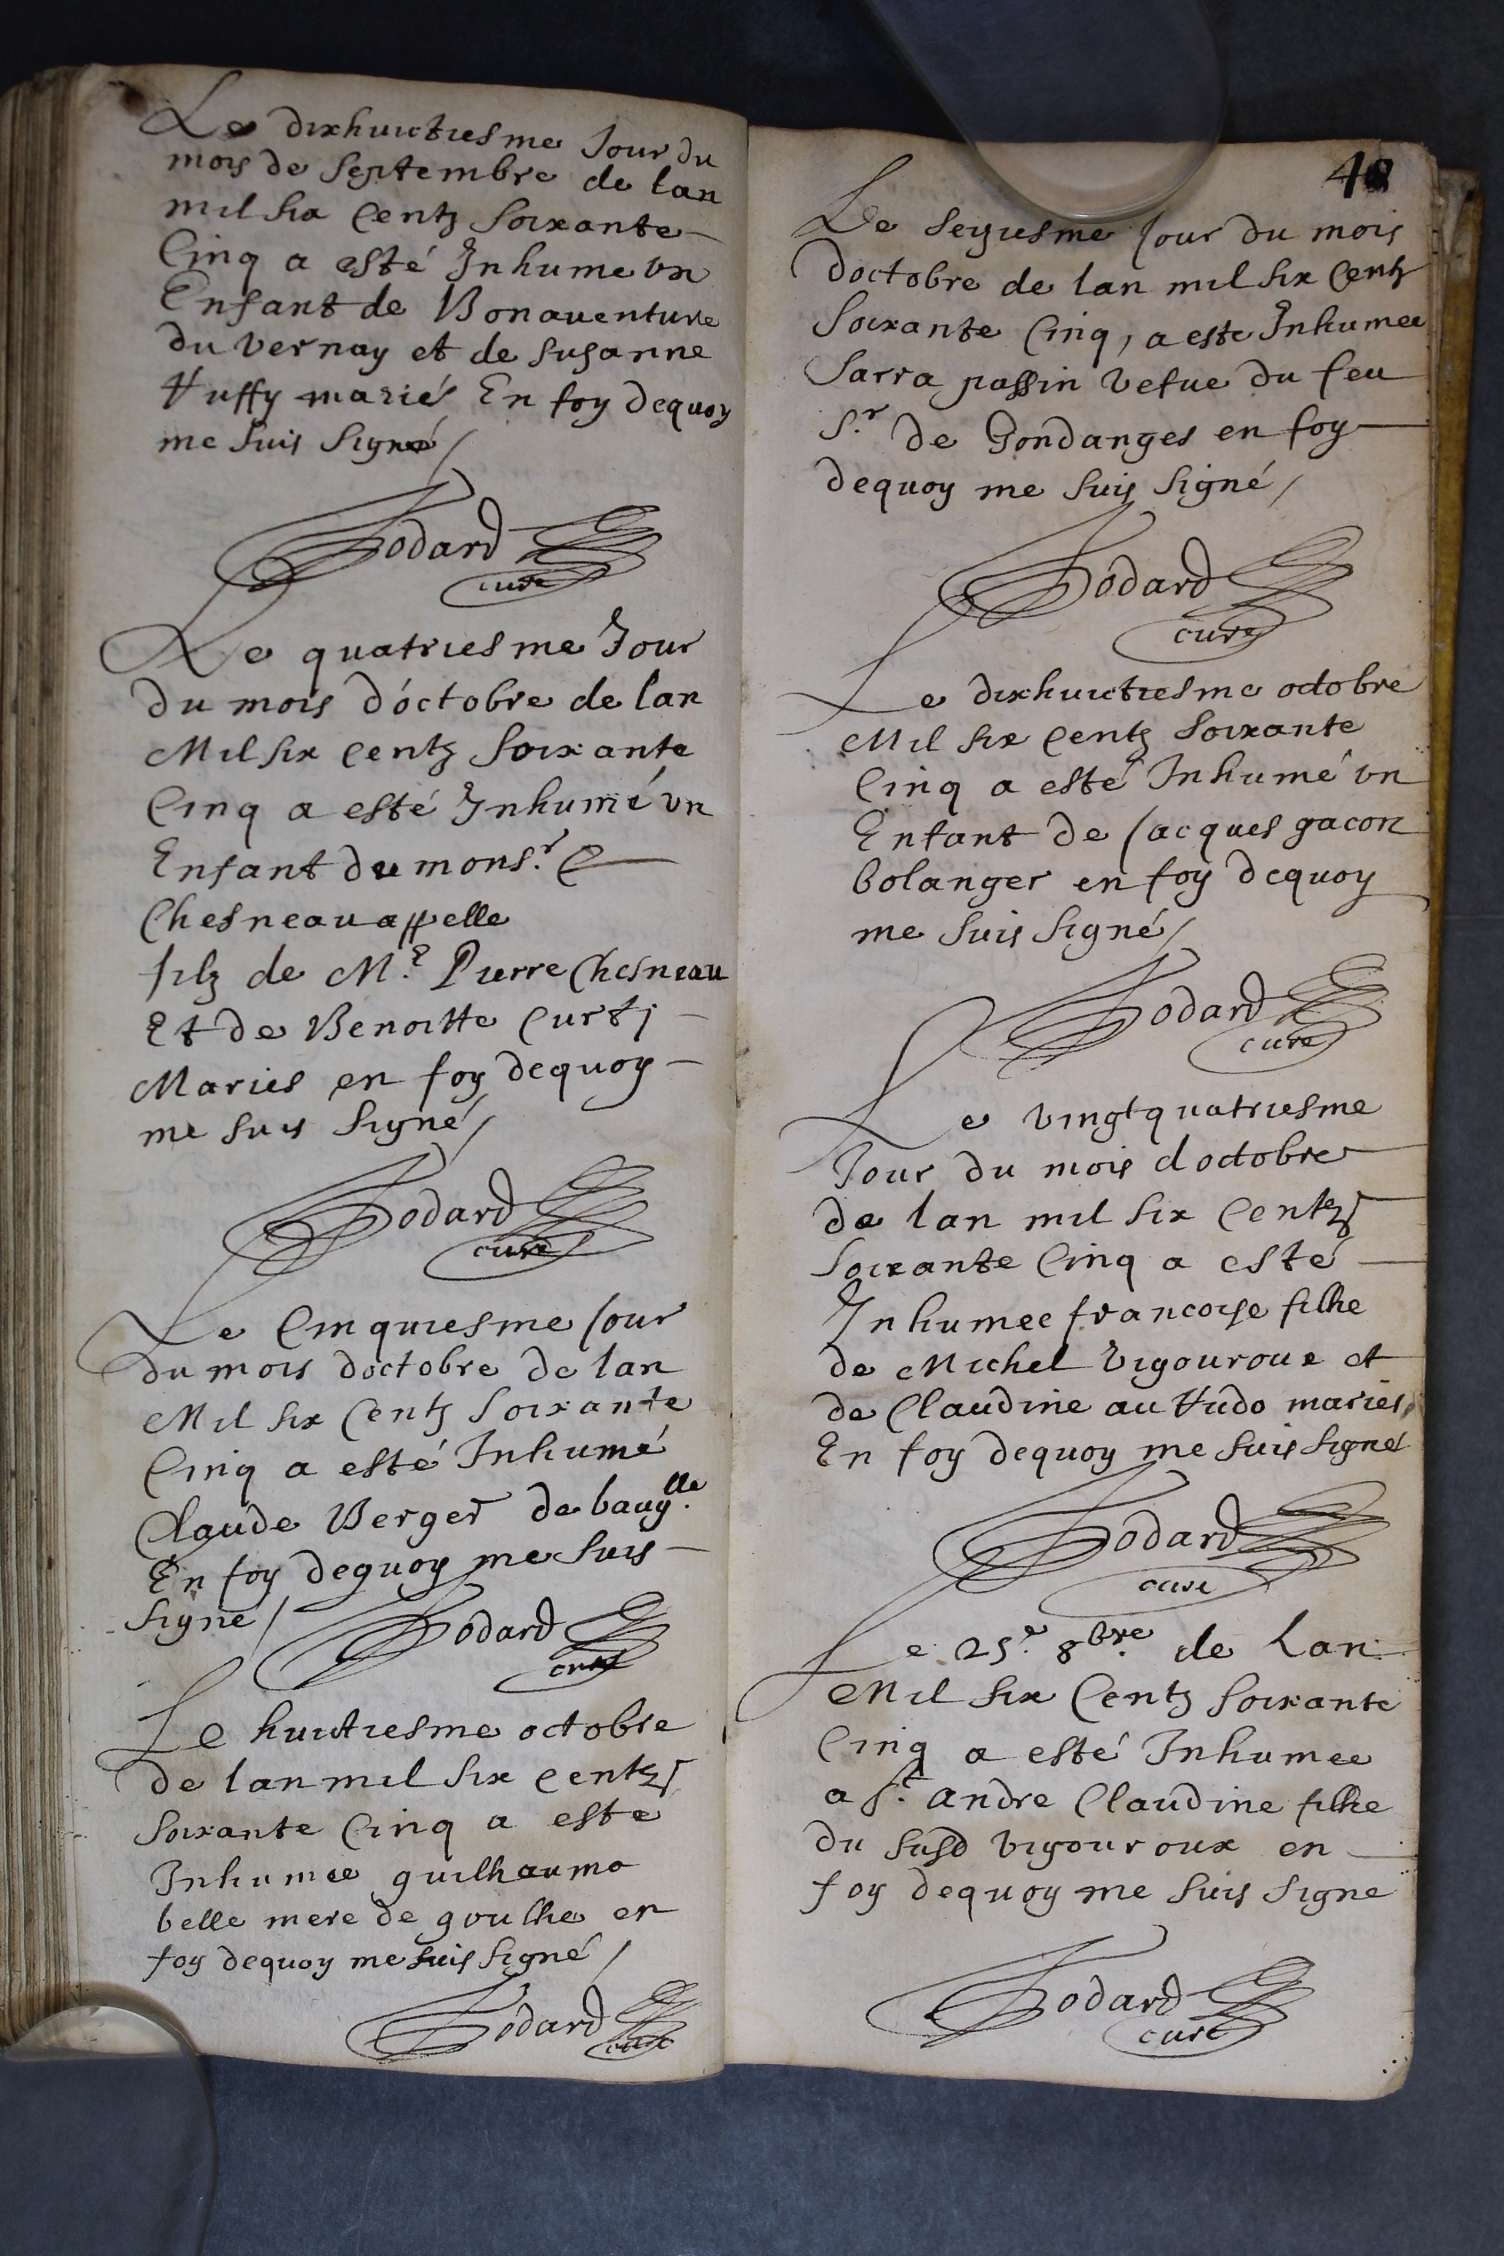 Le dixhuictiesme Jour du
mois de Septembre de lan
mil six Centz Soixante
Cinq a esté Inhume vn
Enfant de Bonauenture
du vernay et de susanne
Huffy mariés En foy dequoy
me suis Signé /
Godard
curé
Le quatriesme Jour
du mois d'octobre de lan
Mil six Centz Soixante
Cinq a esté Inhumé vn
Enfant du mons.r
Chesneau appelle
filz de M.e Pierre Chesneau
Et de Benoitte Curti
Maries en foy dequoy
me suis Signé /
Godard
curé
Le Cinquiesme Jour
du mois doctobre de lan
Mil six Centz Soixante
Cinq a esté Inhumé
Claude Berger de baug.lle
En foy dequoy me suis
Signé /
Godard
curé
Le huictiesme octobre
de lan mil six Centz
Soixante Cinq a esté
Inhumée guilhauma
belle mere de goulhe en
foy dequoy me suis Signé /
Godard
curé
48
Le seziesme Jour du mois
doctobre de lan mil six Centz
Soixante Cinq, a este Inhumee
Sarra passin vefue du feu
S.r de Gondanges en foy
dequoy me suis signé /
Godard
curé
Le dixhuictiesme octobre
Mil six Centz Soixante
Cinq a esté Inhumé vn
Enfant de Jacques gacon
bolanger en foy dequoy
me suis Signé /
Godard
curé
Le vingtquatriesme
Jour du mois doctobre
de lan mil six Centz
Soixante Cinq a esté
Inhumee francoise filhe
de Michel vigouroux et
de Claudine au Hudo maries,
En foy dequoy me suis signé
Godard
curé
Le 25.e 8.bre de Lan
Mil six Centz Soixante
Cinq a esté Inhumee
a S.t andre Claudine filhe
du susd vigouroux en
foy dequoy me suis signe
Godard
curé